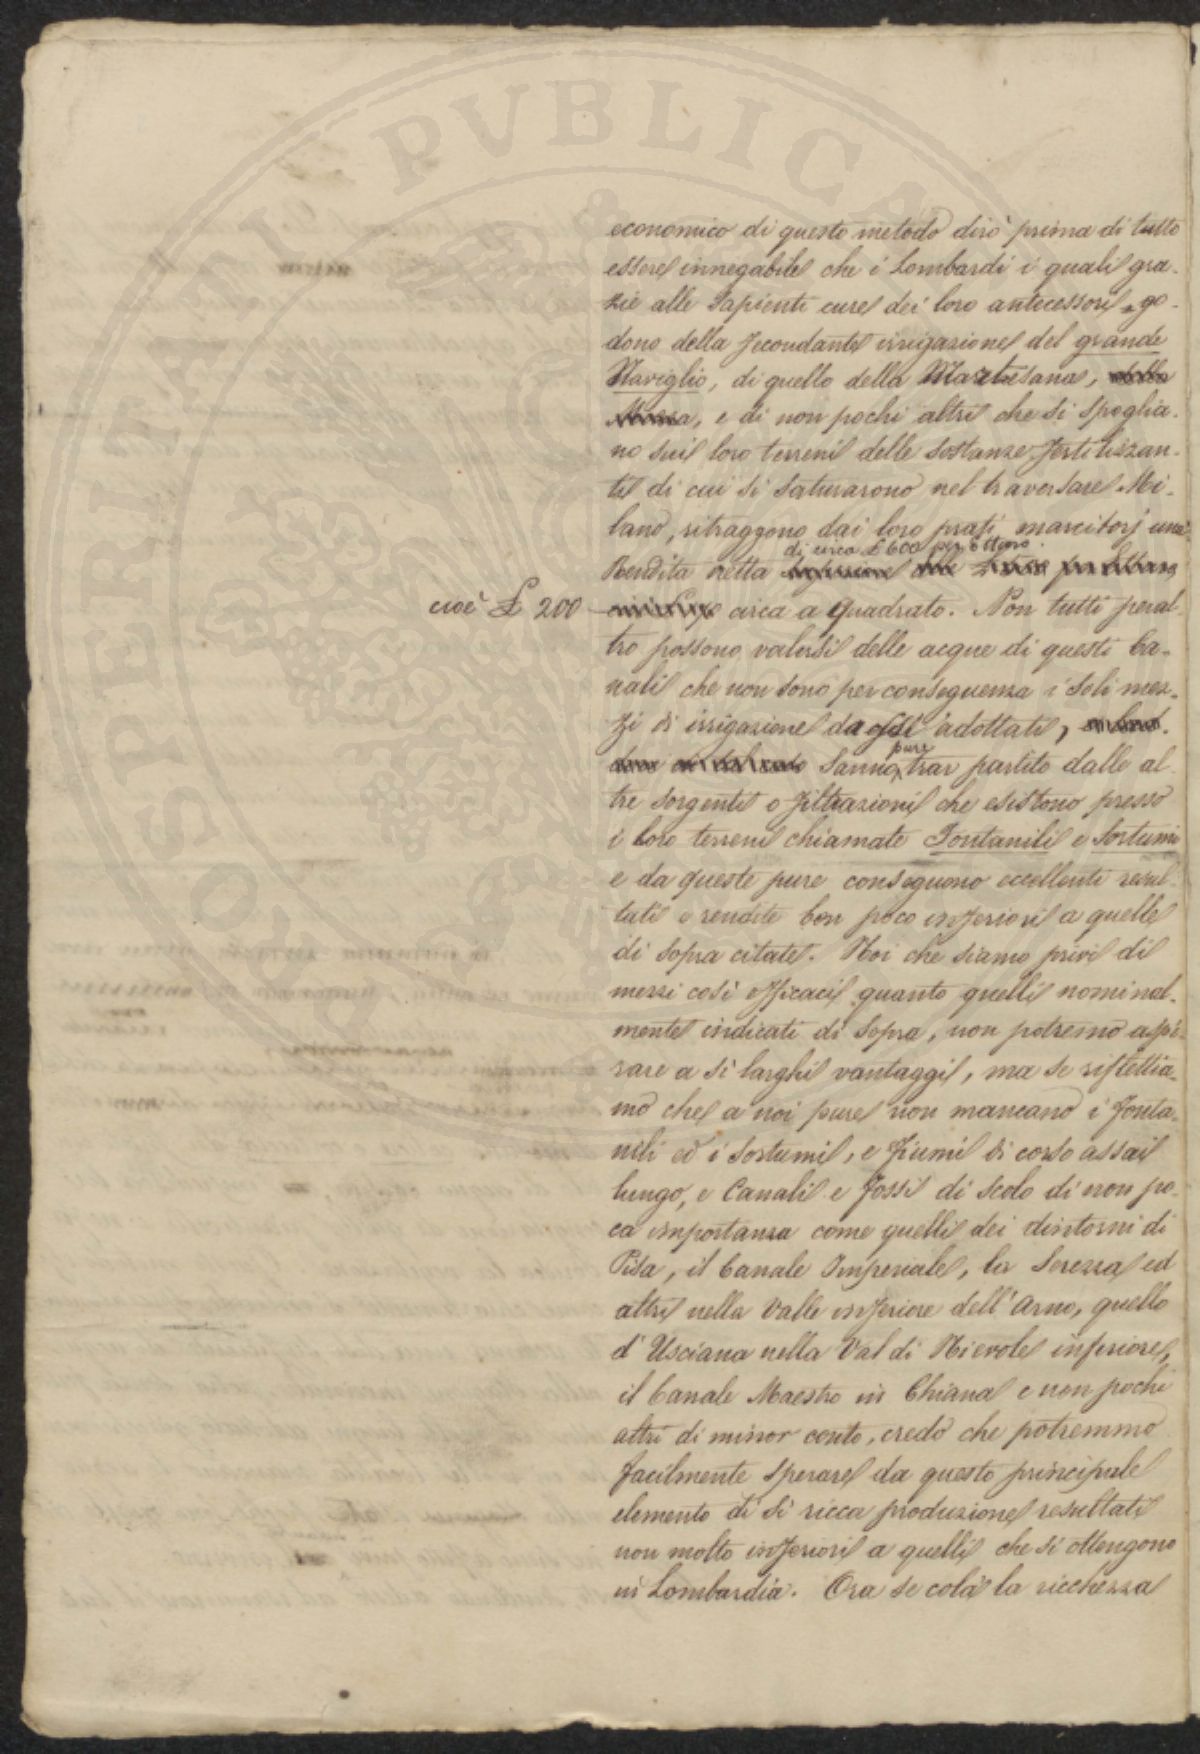 economico di questo metodo dirò prima di tutto
essere innegabile che i Lombardi i quali gra-
zie alle sapienti cure dei loro antecessori go-
dono della fecondante irrigazione del grande
Naviglio, di quello della Martesana, della
Muzza, e di non pochi altri che si spoglia-
no sui loro terreni delle sostanze fertilizzan-
ti di cui si saturarono nel traversare Mi-
lano, ritraggono dai loro prati marcitorj una
di circa £ 600 per ettaro
Rendita netta alle Lire per Ettaro
cioè £ 200 circa a quadrato. Non tutti peral-
tro possono valersi delle acque di questi Ca-
nali che non sono per conseguenza i soli mez-
zi di irrigazione da essi adottati,
pure
sanno trar partito dalle al-
tre sorgenti o filtrazioni che esistono presso
i loro terreni chiamate Fontanili e Sortumi
e da queste pure conseguono eccellenti resul-
tati e rendite ben poco inferiori a quelle
di sopra citate. Noi che siamo privi di
mezzi così efficaci quanto quelli nominal-
mente indicati di sopra, non potremo aspi-
rare a sì larghi vantaggi, ma se riflettia-
mo che a noi pure non mancano i fonta-
nili ed i sortumi, e fiumi di corso assai
lungo, e Canali e fossi di scolo di non po-
ca importanza come quelli dei dintorni di
Pisa, il Canale Imperiale, la Serezza ed
altri nella Valle inferiore dell'Arno, quello
d'Usciana nella Val di Nievole inferiore,
il Canale Maestro in Chiana e non pochi
altri di minor conto, credo che potremmo
facilmente sperare da questo principale
elemento di sì ricca produzione resultati
non molto inferiori a quelli che si ottengono
in Lombardia. Ora se colà la ricchezza